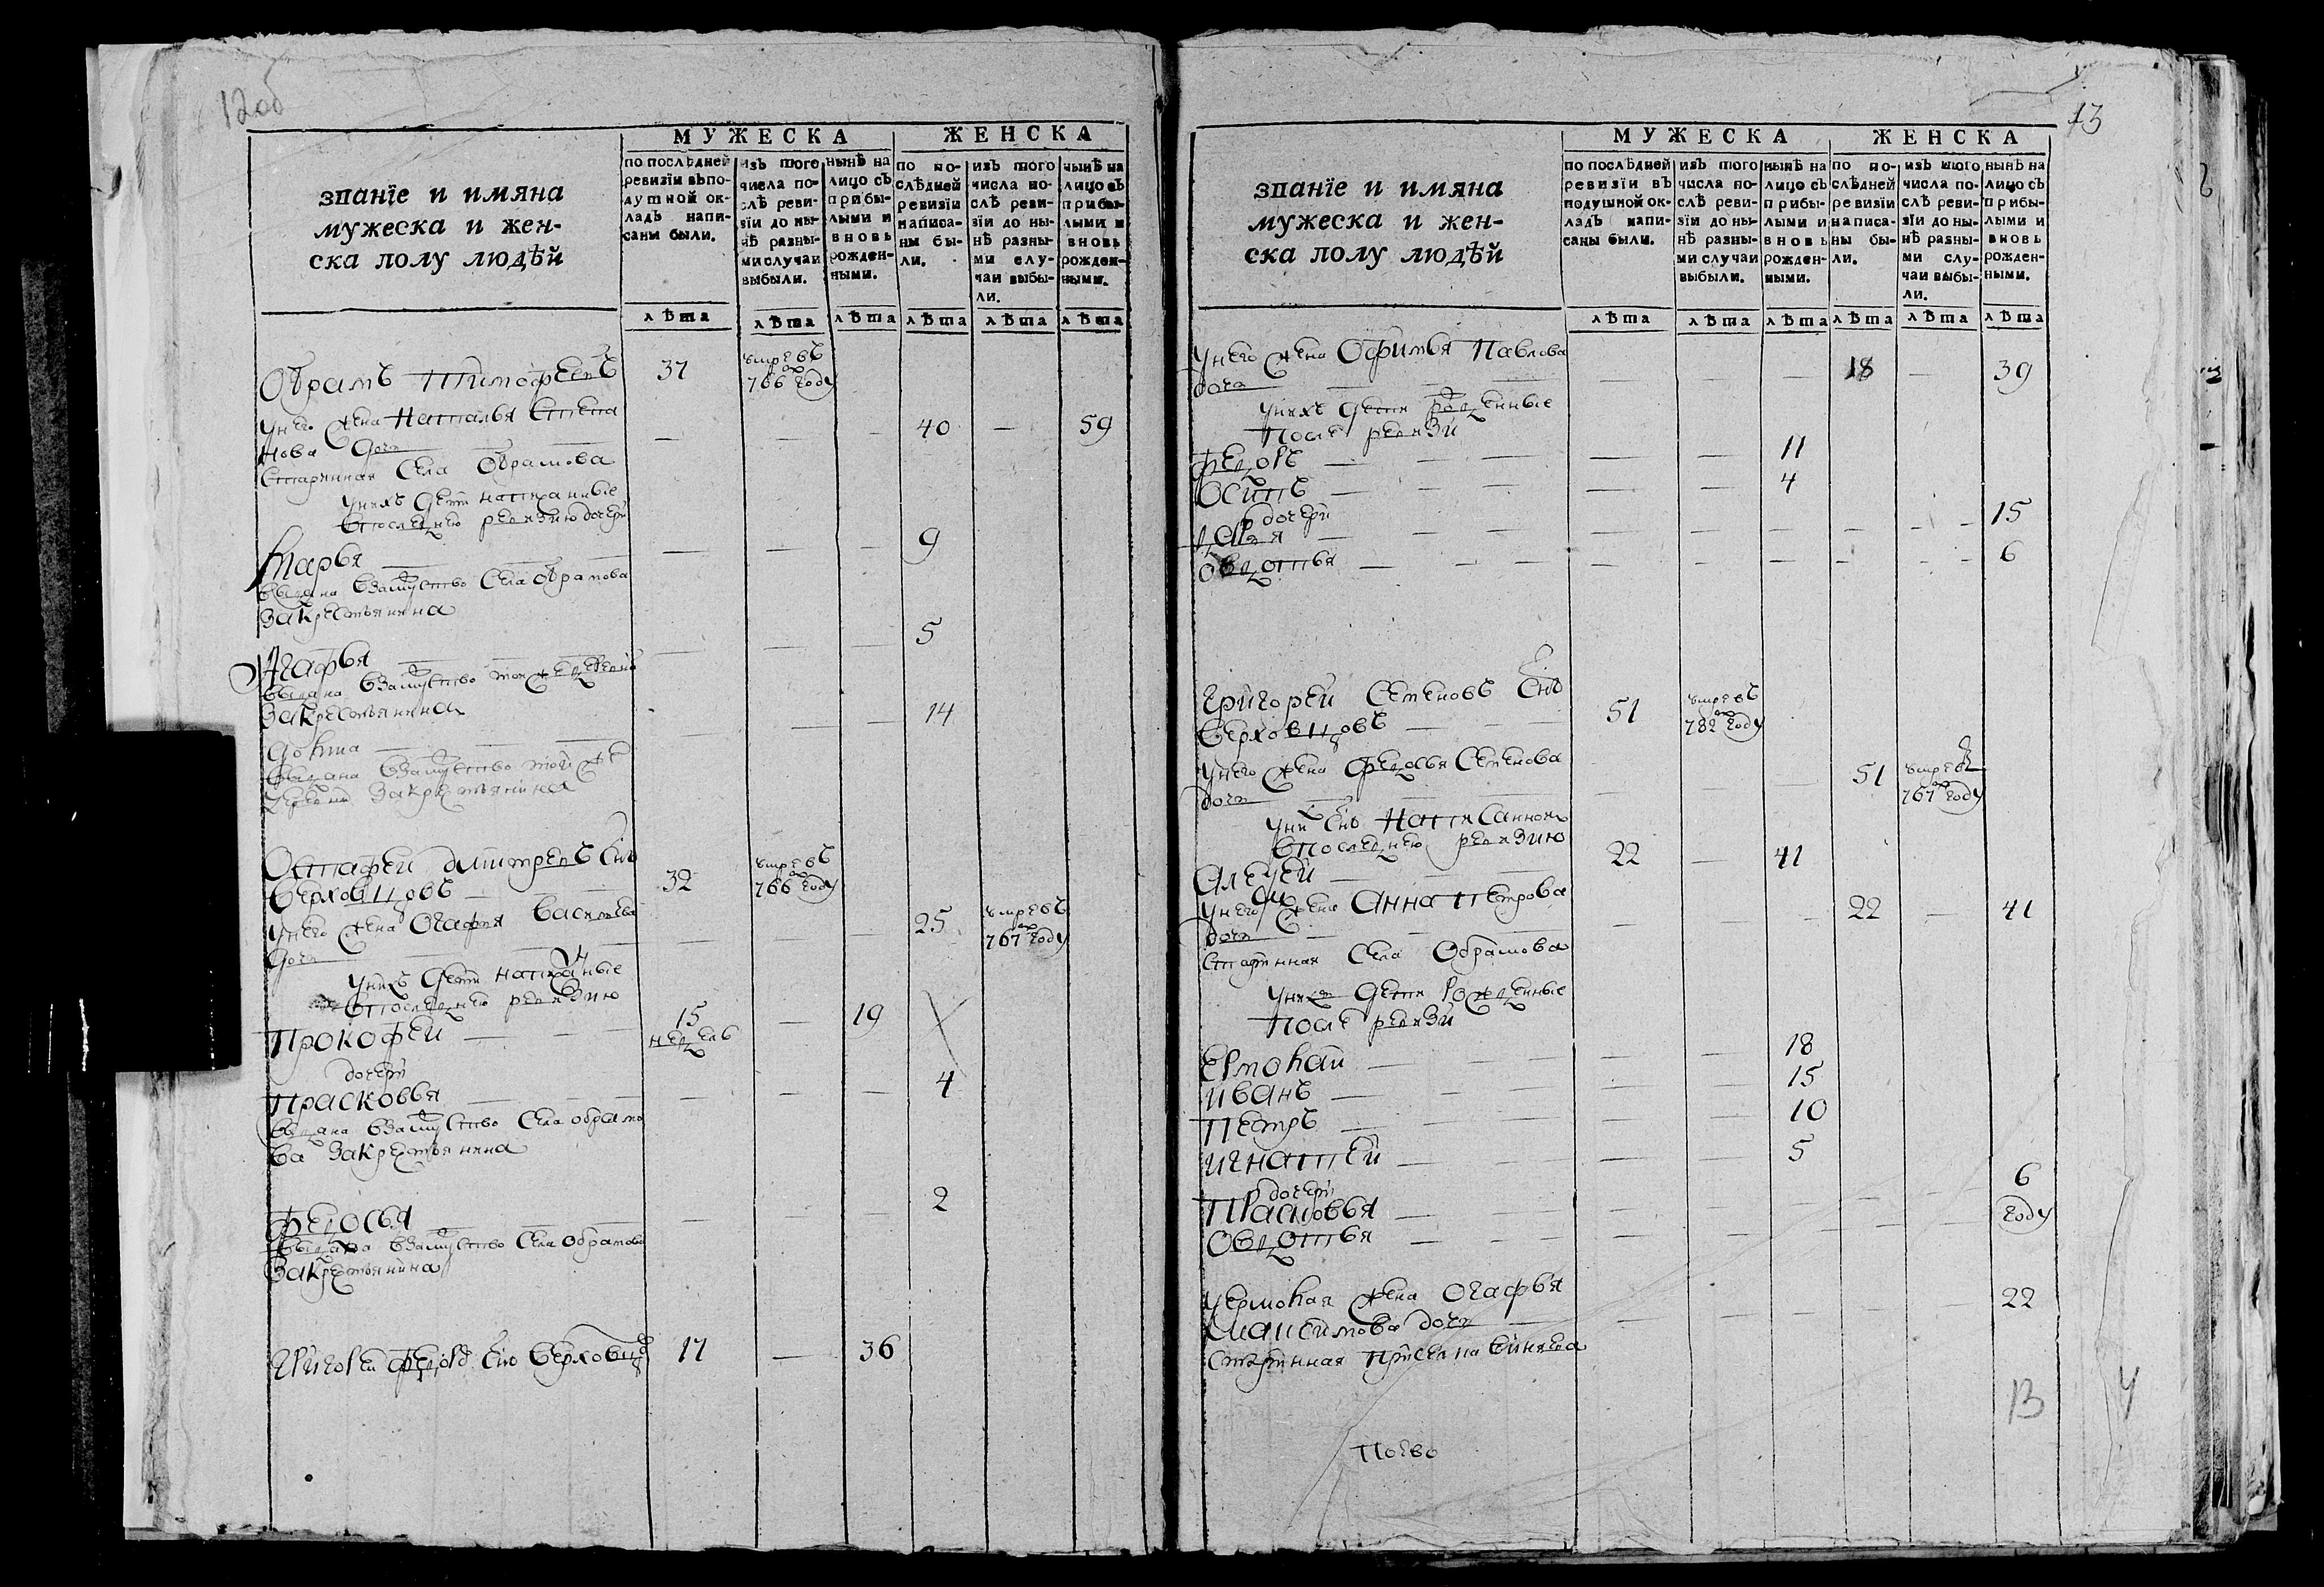 12об
МУЖЕСКА ЖЕНСКА
званїе и имяна
мужеска и жен-
ска полу людѣй
по послѣдней
ревизїи въ по-
душной ок-
ладъ напи-
саны были.
изъ того
числа по-
слѣ реви-
зїи до ны-
нѣ разны-
ми случаи
выбыли.
нынѣ на
лицо съ
прибы-
лыми и
вновь
рожден-
ными.
по по-
слѣдней
ревизїи
написа-
ны бы-
ли.
изъ того
числа по-
слѣ реви-
зїи до ны-
нѣ разны-
ми слу-
чаи выбы-
ли.
нынѣ на
лицо съ
прибы-
лыми и
вновь
рожден-
ными.
лѣта лѣта лѣта лѣта лѣта лѣта
Обрамъ Тимофеевъ 37 умре въ 766 году
у него жена Наталья Степа
нова дочь 40 59
старинная села Обрамова
у нихъ дети написанные
в последнюю ревизию дочери
Марья 9
выдана в замуство села Обрамова
за крестьянина
Агафья 5
выдана в замуство тояже деревни
за крестьянина
14
выдана в замуство той же
деревни за крестьянина
Остафей Дмитревъ снъ
Верховцовъ 32 умре въ 766 году
у него жена Огафья Васильева
дочь 25 умре въ 767 году
у нихъ дети написаные
в последнюю ревизию
Прокофей 15 недель 19
дочери
Прасковья 4
выдана в замуство села Обрамо
ва за крестьянина
Федосья 2
выдана в замуство села Обрамова
за крестьянина
Григорей Федоръ снъ Верховцо 17 36
13
МУЖЕСКА ЖЕНСКА
званїе и имяна
мужеска и жен-
ска полу людѣй
по послѣдней
ревизїи въ
подушной ок-
ладъ напи-
саны были.
изъ того
числа по-
слѣ реви-
зїи до ны-
нѣ разны-
ми случаи
выбыли.
нынѣ на
лицо съ
прибы-
лыми и
вновь
рожден-
ными.
по по-
слѣдней
ревизїи
написа-
ны бы-
ли.
изъ того
числа по-
слѣ реви-
зїи до ны-
нѣ разны-
ми слу-
чаи выбы-
ли.
нынѣ на
лицо съ
прибы-
лыми и
вновь
рожден-
ными.
лѣта лѣта лѣта лѣта лѣта лѣта
у него жена Офимья Павлова
дочь 18 39
у нихъ дети рожденные
после ревизи
Федоръ 11
Осипъ 4
дочери
Дарья 15
Овдотья 6
Григорей Семеновъ снъ
Верховцовъ 51 умре въ 782 году
у него жена Федосья Семенова
дочь 51 умре въ 767 году
у них снъ написанной
в последнею ревизию
Алексей 22 41
у него жена Анна Петрова
дочь 22 41
старинная села Обрамова
у них дети рожденные
после ревизи
Ермолай 18
Иванъ 15
Петръ 10
Игнатей 5
дочери
Прасковья 6
Овдотья году
у Ермолая жена Огафья
Максимова дочь 22
старинная
13
4